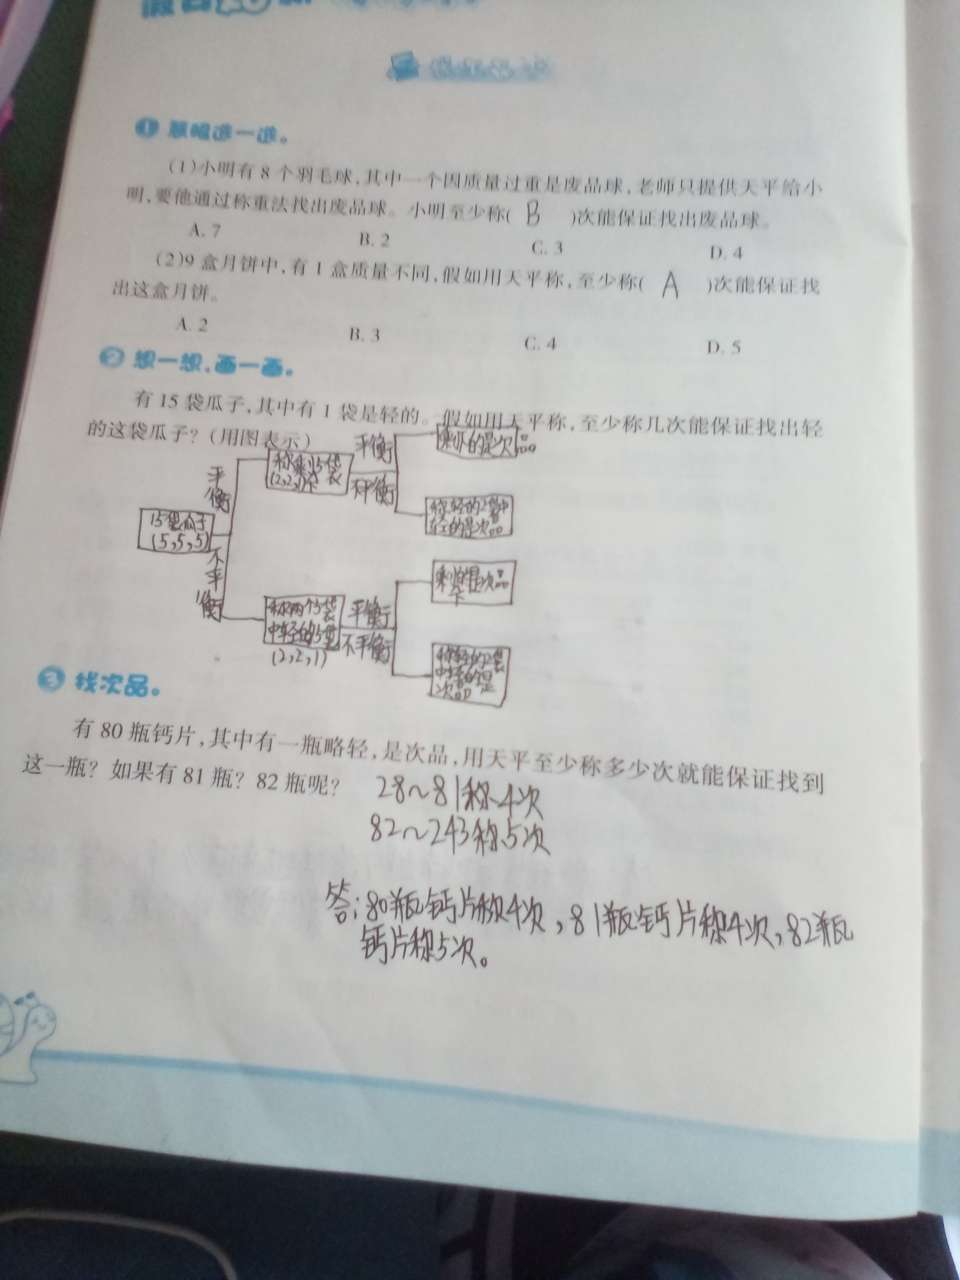 ① 慧眼选一选。
(1)小明有8个羽毛球,其中一个因质量过重是废品球,老师只提供天平给小
明,要他通过称重法找出废品球。小明至少称( B )次能保证找出废品球。
A. 7 B. 2 C. 3 D. 4
(2)9盒月饼中,有1盒质量不同,假如用天平称,至少称( A )次能保证找
出这盒月饼。
A. 2 B. 3 C. 4 D. 5
② 想一想,画一画。
有15袋瓜子,其中有1袋是轻的。假如用天平称,至少称几次能保证找出轻
的这袋瓜子?(用图表示)
15袋瓜子
(5,5,5)
平衡
不平衡
(2,2,1)
平衡
不平衡
剩下的是次品
称轻的2袋中
轻的是次品
称两个5袋
中轻的5袋
(2,2,1)
平衡
不平衡
③ 找次品。
有80瓶钙片,其中有一瓶略轻,是次品,用天平至少称多少次就能保证找到
这一瓶?如果有81瓶?82瓶呢?
28~81称4次
82~243称5次
答:80瓶钙片称4次,81瓶钙片称4次,82瓶
钙片称5次。